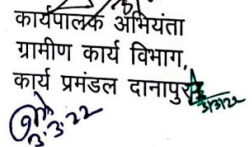 कार्यपालक अभियंता
ग्रामीण कार्य विभाग,
कार्य प्रमंडल दानापुर
3/3/22
3.3.22